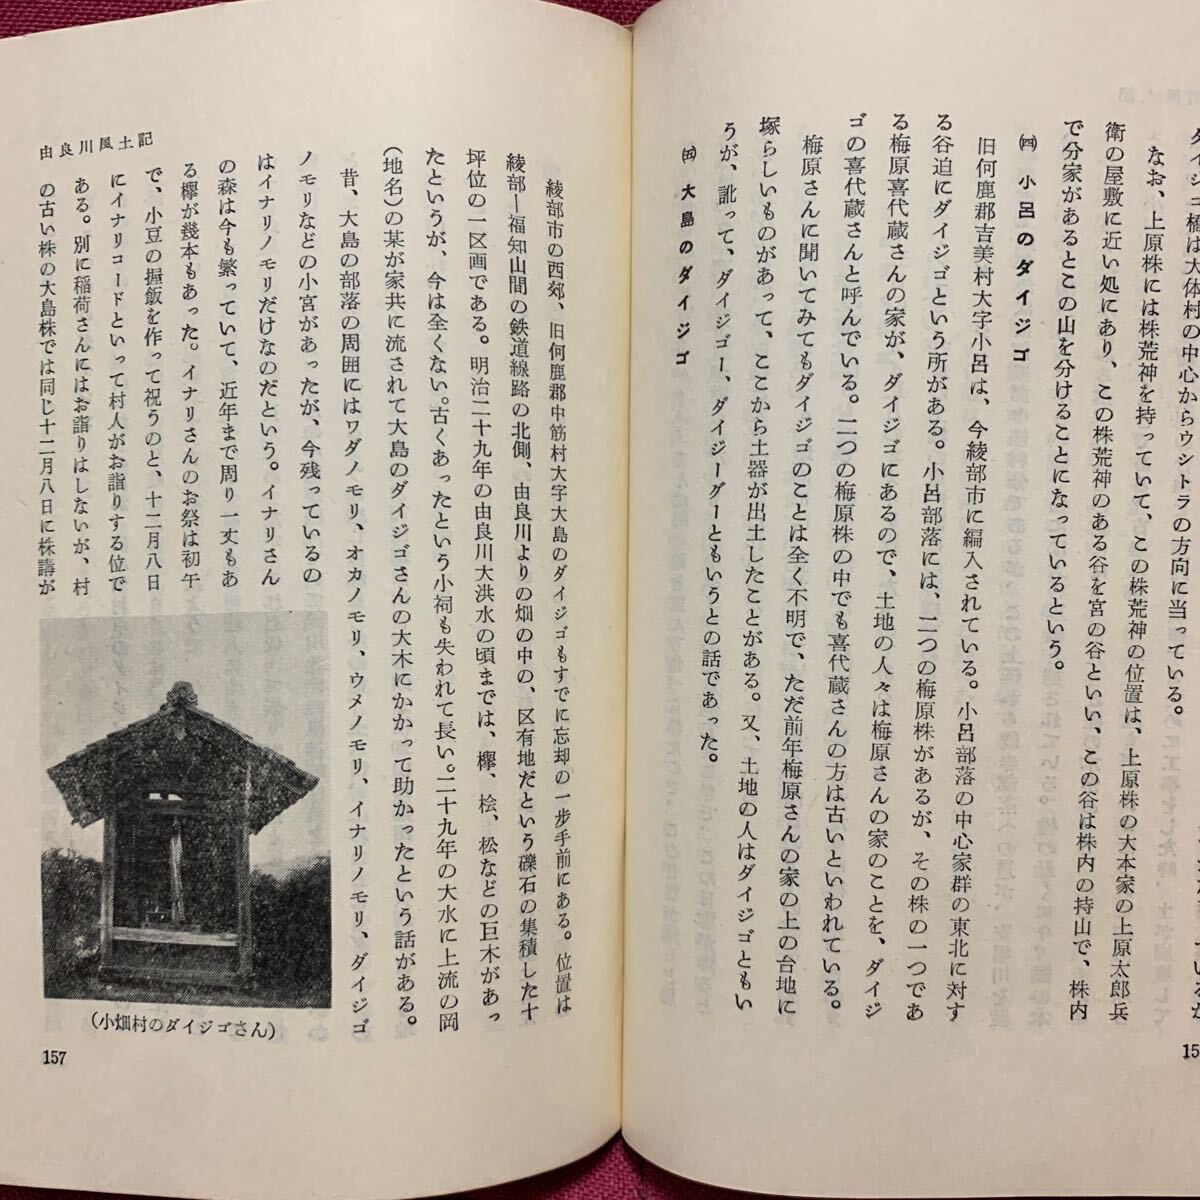 ダイジゴ橋は大体村の中心からウシトラの方向に当っている。
なお、上原株には株荒神を持っていて、この株荒神の位置は、上原株の大本家の上原太郎兵
衛の屋敷に近い処にあり、この株荒神のある谷を宮の谷といい、この谷は株内の持山で、株内
で分家があるとこの山を分けることになっているという。
㈣ 小呂のダイジゴ
旧何鹿郡吉美村大字小呂は、今綾部市に編入されている。小呂部落の中心家群の東北に対す
る谷迫にダイジゴという所がある。小呂部落には、二つの梅原株があるが、その株の一つであ
る梅原喜代蔵さんの家が、ダイジゴにあるので、土地の人々は梅原さんの家のことを、ダイジ
ゴの喜代蔵さんと呼んでいる。二つの梅原株の中でも喜代蔵さんの方は古いといわれている。
梅原さんに聞いてみてもダイジゴのことは全く不明で、ただ前年梅原さんの家の上の台地に
塚らしいものがあって、ここから土器が出土したことがある。又、土地の人はダイジゴともい
うが、訛って、ダイジゴー、ダイジーグーともいうとの話であった。
㈤ 大島のダイジゴ
綾部市の西郊、旧何鹿郡中筋村大字大島のダイジゴもすでに忘却の一歩手前にある。位置は
綾部—福知山間の鉄道線路の北側、由良川よりの畑の中の、区有地だという礫石の集積した十
坪位の一区画である。明治二十九年の由良川大洪水の頃までは、欅、桧、松などの巨木があっ
たというが、今は全くない。古くあったという小祠も失われて長い。二十九年の大水に上流の岡
(地名)の某が家共に流されて大島のダイジゴさんの大木にかかって助かったという話がある。
昔、大島の部落の周囲にはワダノモリ、オカノモリ、ウメノモリ、イナリノモリ、ダイジゴ
ノモリなどの小宮があったが、今残っているの
はイナリノモリだけなのだという。イナリさん
の森は今も繁っていて、近年まで周り一丈もあ
る欅が幾本もあった。イナリさんのお祭は初午
で、小豆の握飯を作って祝うのと、十二月八日
にイナリコードといって村人がお詣りする位で
ある。別に稲荷さんにはお詣りはしないが、村
の古い株の大島株では同じ十二月八日に株講が
(小畑村のダイジゴさん)
由良川風土記
157